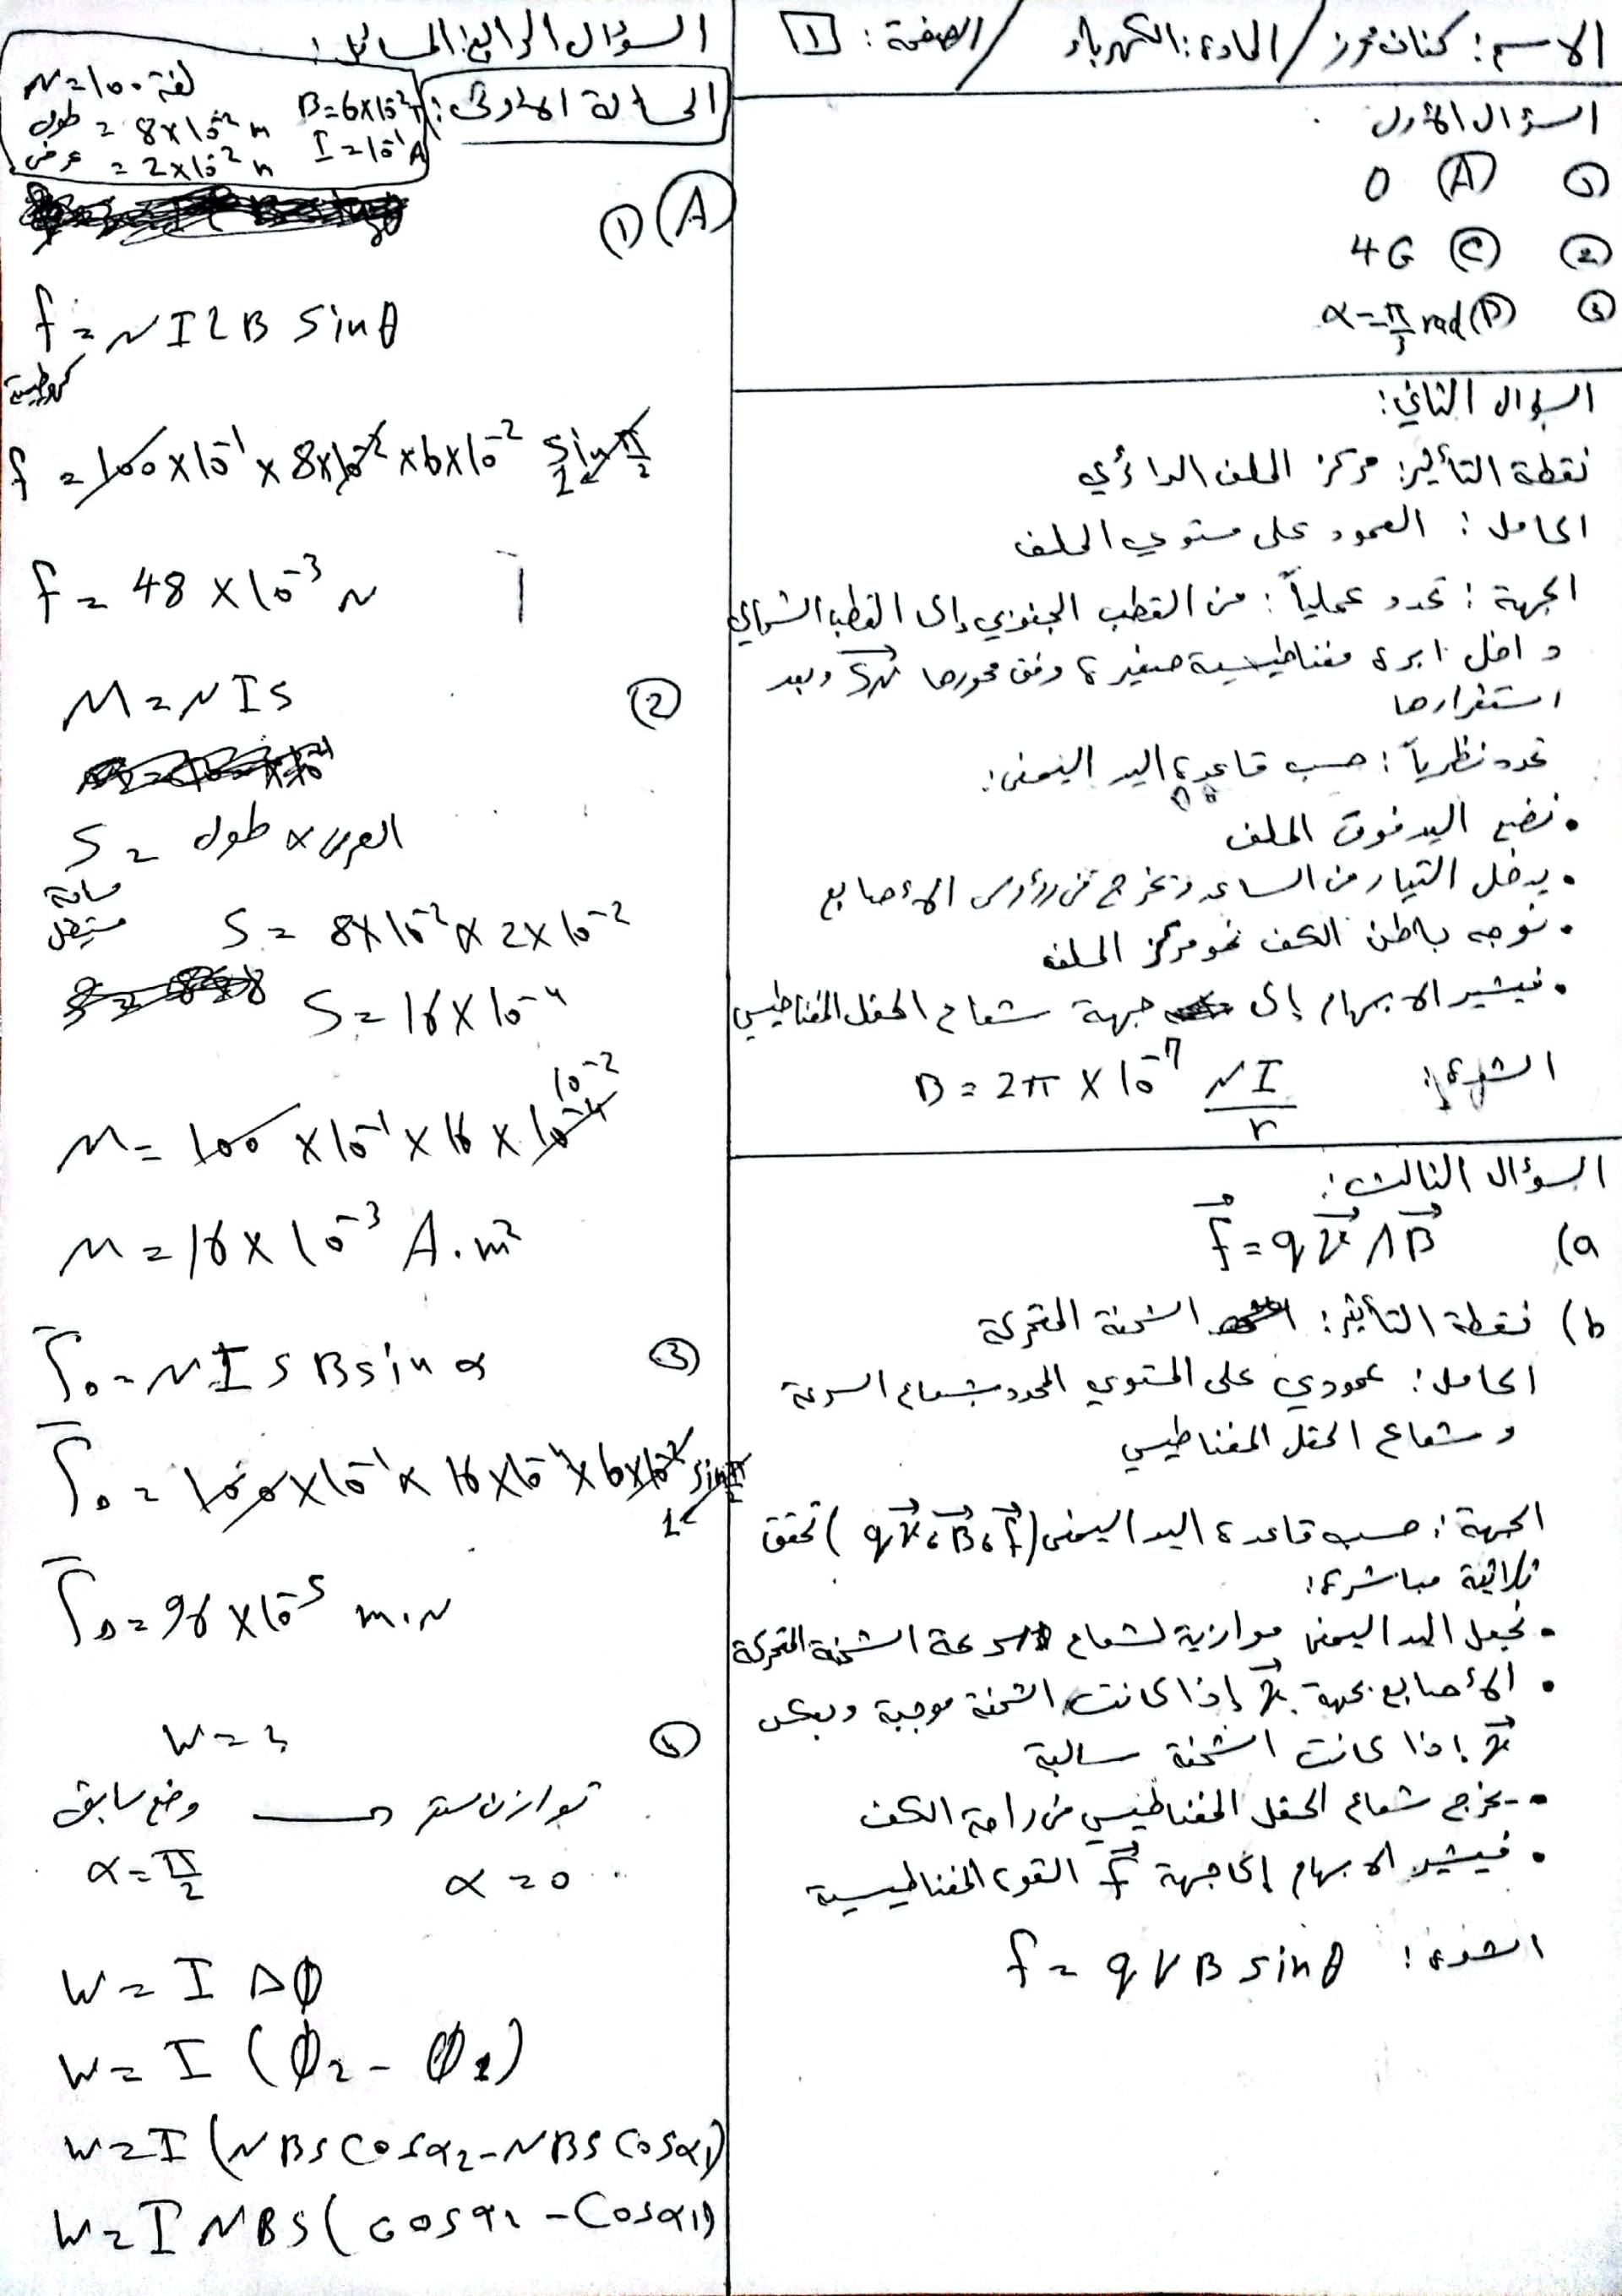 الاسم: كنان محرز / المادة: الكهرباء / الصفحة: 1
السؤال الأول
① A 0
② C 4G
③ D α = π/3 rad
السؤال الثاني:
نقطة التأثير: مركز الملف الدائري
الحامل: العمود على مستوي الملف
الجهة: تحدد عملياً: من القطب الجنوبي إلى القطب الشمالي
داخل ابرة مغناطيسية صغيرة وفق محورها SN وبعد
استقرارها
تحدد نظرياً: حسب قاعدة اليد اليمنى:
• نضع اليد فوق الملف
• يدخل التيار من الساعد وتخرج من رؤوس الأصابع
• نوجه باطن الكف نحو مركز الملف
• فيشير الابهام إلى جهة شعاع الحقل المغناطيسي
الشدة: B = 2π × 10⁻⁷ NI/r
السؤال الثالث:
a) f = qv ∧ B
b) نقطة التأثير: الشحنة المتحركة
الحامل: عمودي على المستوي المحدد بشعاع السرعة
وشعاع الحقل المغناطيسي
الجهة: حسب قاعدة اليد اليمنى (qv, B, f) تحقق
ثلاثية مباشرة:
• نجعل اليد اليمنى موازية لشعاع سرعة الشحنة المتحركة
• الأصابع بجهة v إذا كانت الشحنة موجبة وبعكس
v إذا كانت الشحنة سالبة
• يخرج شعاع الحقل المغناطيسي من راحة الكف
• فيشير الابهام إلى جهة f القوة المغناطيسية
الشدة: f = qvB sinθ
السؤال الرابع: المسائل:
المسألة الأولى:
N = 100 لفة
B = 6×10⁻² T
طول = 8×10⁻² m
I = 10⁻¹ A
عرض = 2×10⁻² m
A ①
f = NILB sinθ
كهرطيسية
f = 100 × 10⁻¹ × 8×10⁻² × 6×10⁻² sin π/2
1
f = 48 × 10⁻³ N
② M = NIS
S = طول × العرض
مساحة
مستطيل
S = 8×10⁻² × 2×10⁻²
S = 16 × 10⁻⁴
10⁻²
M = 100 × 10⁻¹ × 16 × 10⁻⁴
M = 16 × 10⁻³ A.m²
③ Γ_Δ = NISB sin α
Γ_Δ = 100 × 10⁻¹ × 16×10⁻⁴ × 6×10⁻² sin π/2
1
Γ_Δ = 96 × 10⁻⁵ m.N
④ W = ?
توازن مستقر وضع سابق
α = 0 α = π/2
W = I Δϕ
W = I (ϕ₂ - ϕ₁)
W = I (NBS cosα₂ - NBS cosα₁)
W = I NBS (cosα₂ - cosα₁)